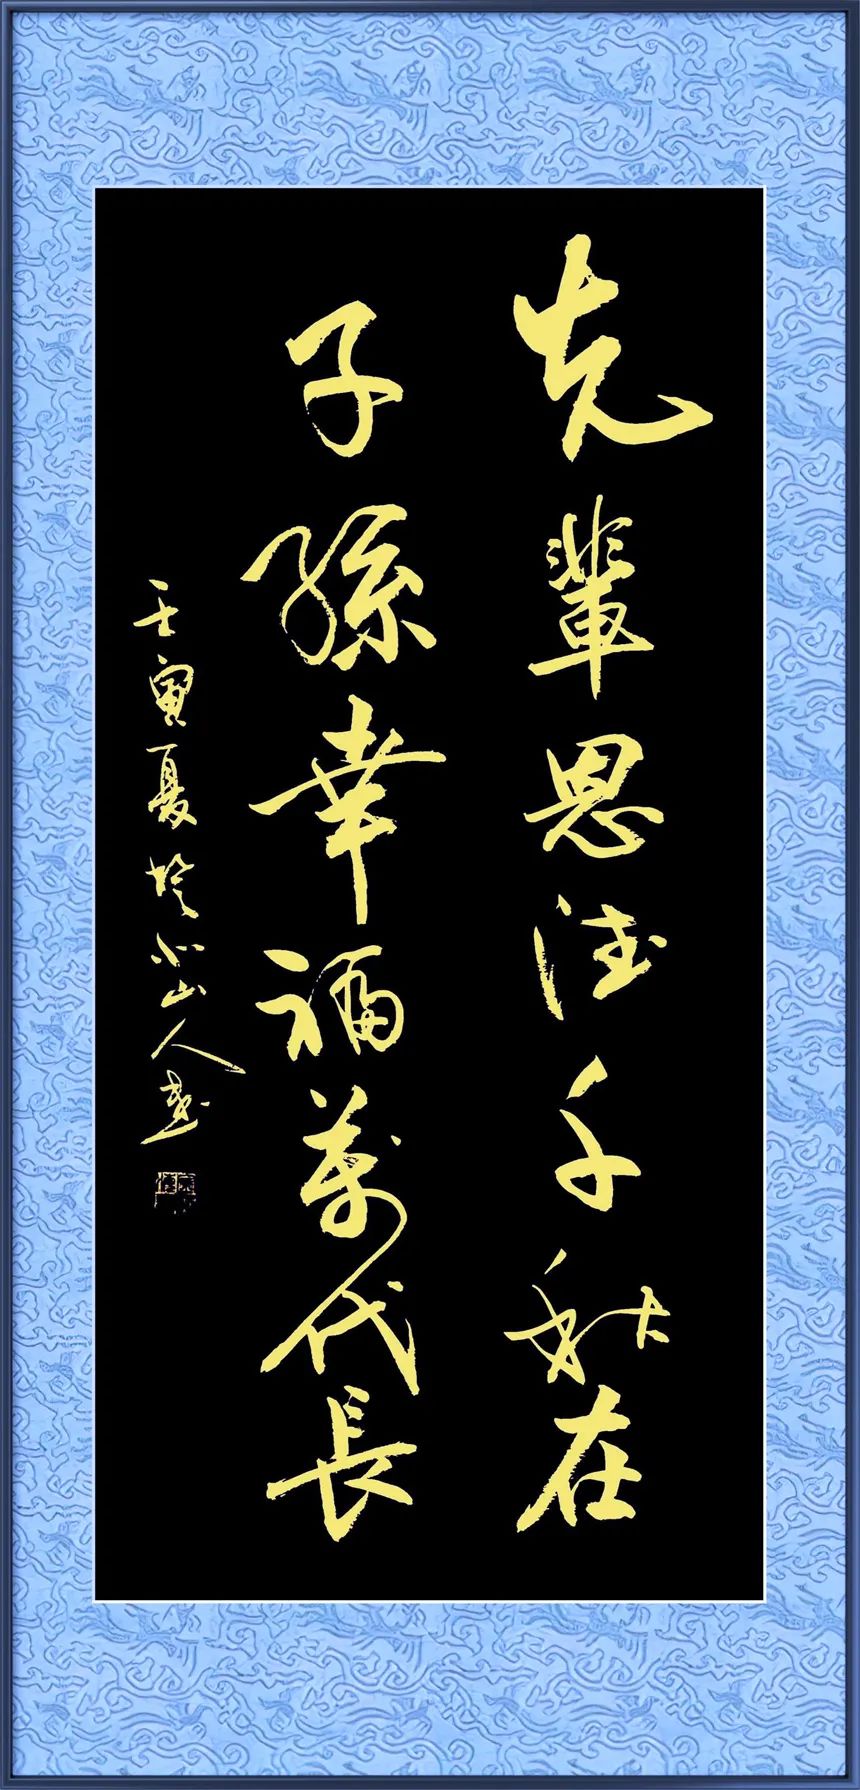 先輩恩德千秋在
子孫幸福萬代長
壬寅夏於北山人書